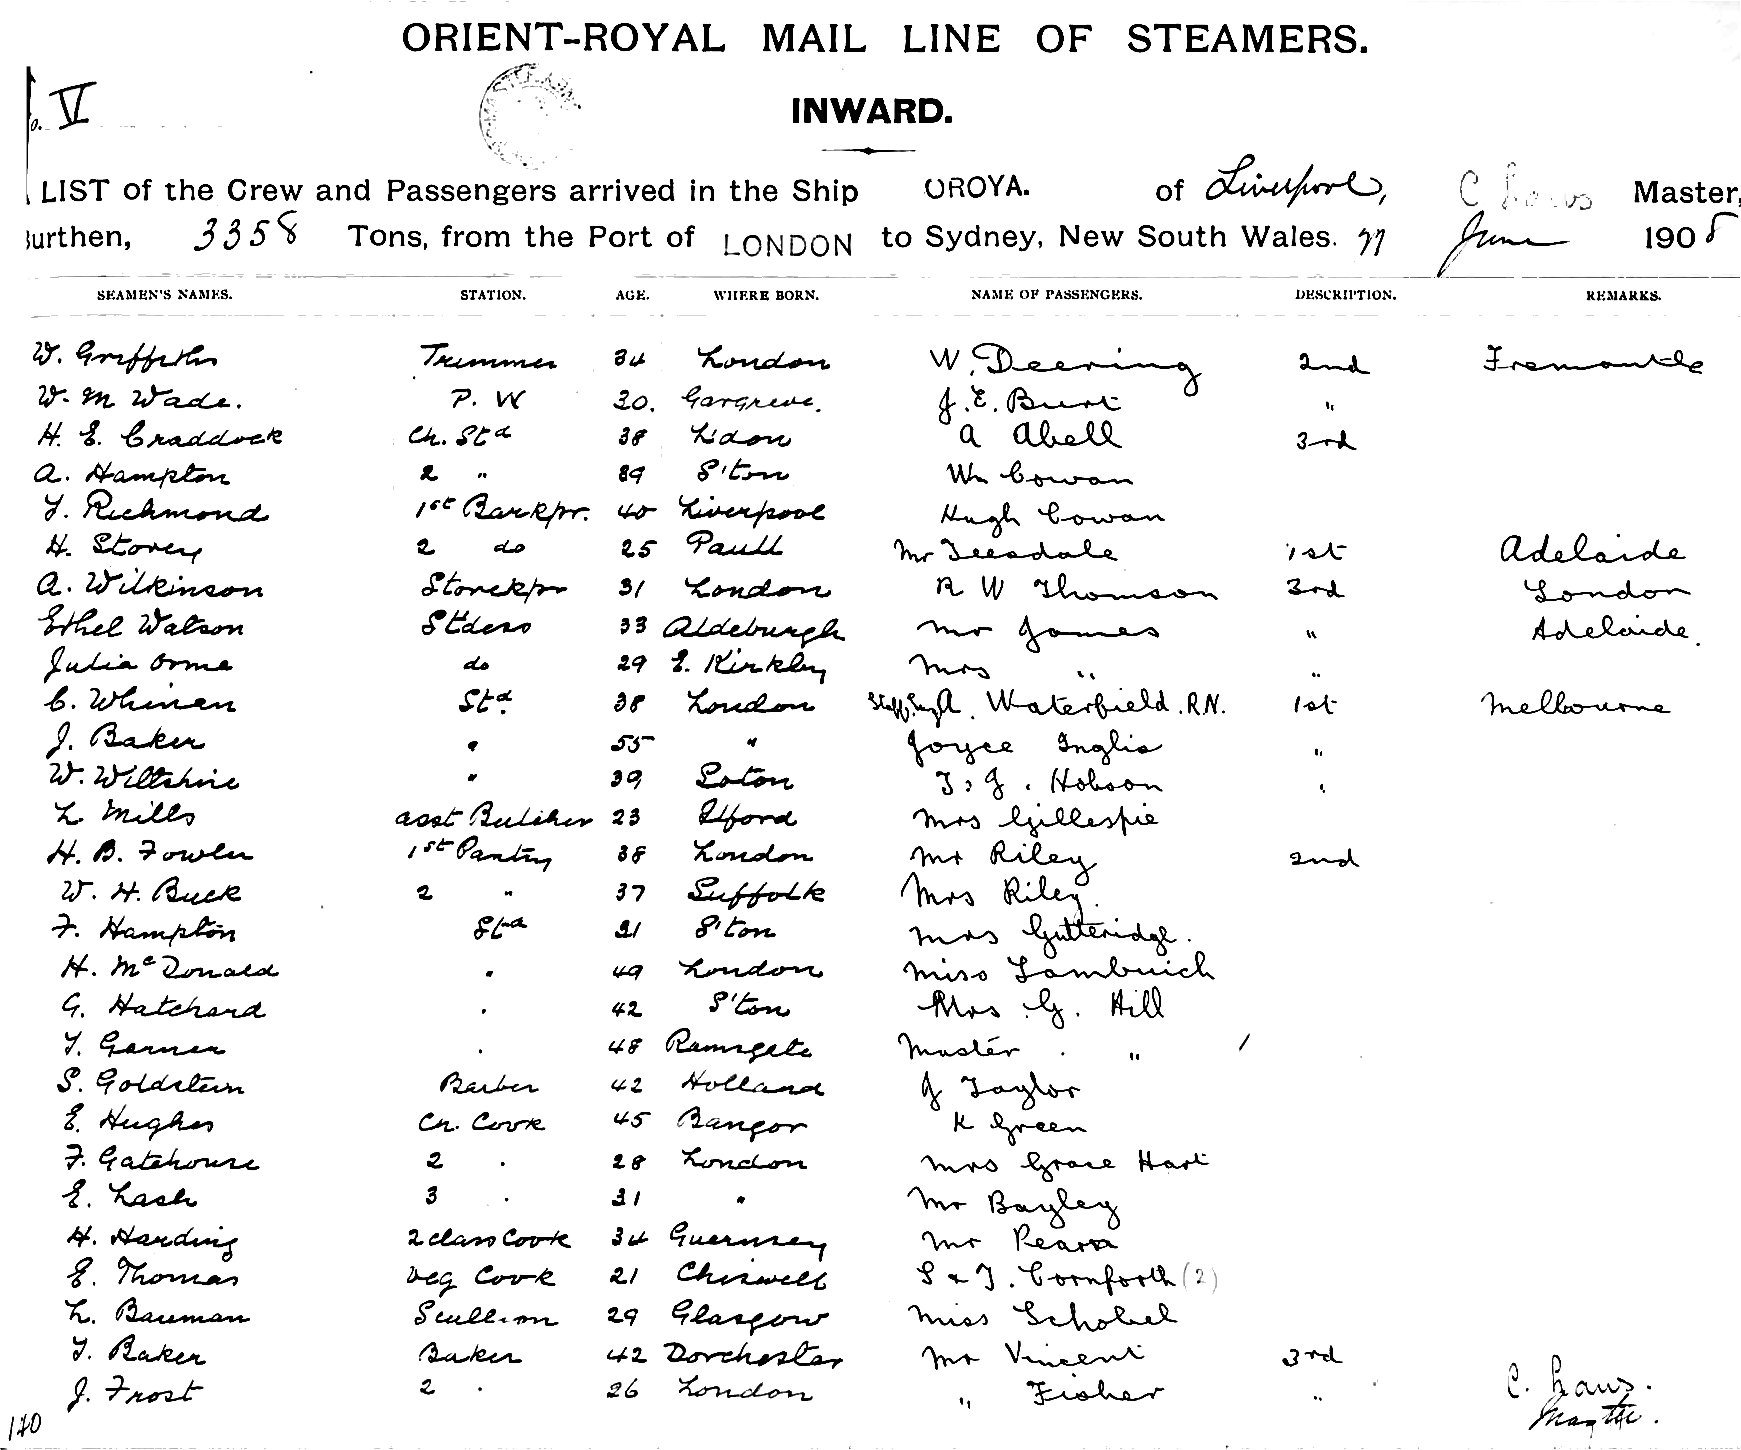 ORIENT-ROYAL MAIL LINE OF STEAMERS.
o. V
INWARD.
LIST of the Crew and Passengers arrived in the Ship OROYA. of Liverpool, C Laws Master,
Burthen, 3358 Tons, from the Port of LONDON to Sydney, New South Wales. June 1908
SEAMEN'S NAMES. STATION. AGE. WHERE BORN. NAME OF PASSENGERS. DESCRIPTION. REMARKS.
W. Griffiths Trimmer 34 London W. Deering 2nd Fremantle
W. M Wade. P. W 30. Gargreve. J. E. Burt "
H. E. Craddock Ch. Std 38 Ldon A Abell 3rd
A. Hampton 2 " 39 S'ton Wm Cowan
T. Richmond 1st Barkpr. 40 Liverpool Hugh Cowan
H. Storey 2 do 25 Paull Mr Teesdale 1st Adelaide
A. Wilkinson Storekpr 31 London R W Thomson 3rd London
Ethel Watson Stdess 33 Aldeburgh Mr James " Adelaide.
Julia Orme do 29 E. Kirkby Mrs " "
C. Whinen Std. 38 London Staff Surg A. Waterfield. R.N. 1st Melbourne
J. Baker " 55 " Joyce Inglis "
W. Wiltshire " 39 Soton T. J. Hobson "
L Mills asst Butcher 23 Ilford Mrs Gillespie
H. B. Fowler 1st Pantry 38 London Mr Riley 2nd
W. H. Buck 2 " 37 Suffolk Mrs Riley.
F. Hampton Std 21 S'ton Mrs Gutteridge.
H. McDonald " 49 London Miss
G. Hatchard " 42 S'ton Mrs G. Hill
T. Garner " 48 Ramsgate Master "
S. Goldstein Barber 42 Holland J Taylor
E. Hughes Ch. Cook 45 Bangor K Green
F. Gatehouse 2 " 28 London Mrs Grace Hart
E. Lash 3 " 31 " Mr Bayley
H. Harding 2 class Cook 34 Guernsey Mr
E. Thomas Veg Cook 21 Chiswell S & T. Cornforth (2)
L. Bauman Scullion 29 Glasgow Miss Schobel
T. Baker Baker 42 Dorchester Mr Vincent 3rd
J. Frost 2 " 26 London " Fisher "
C. Laws.
140